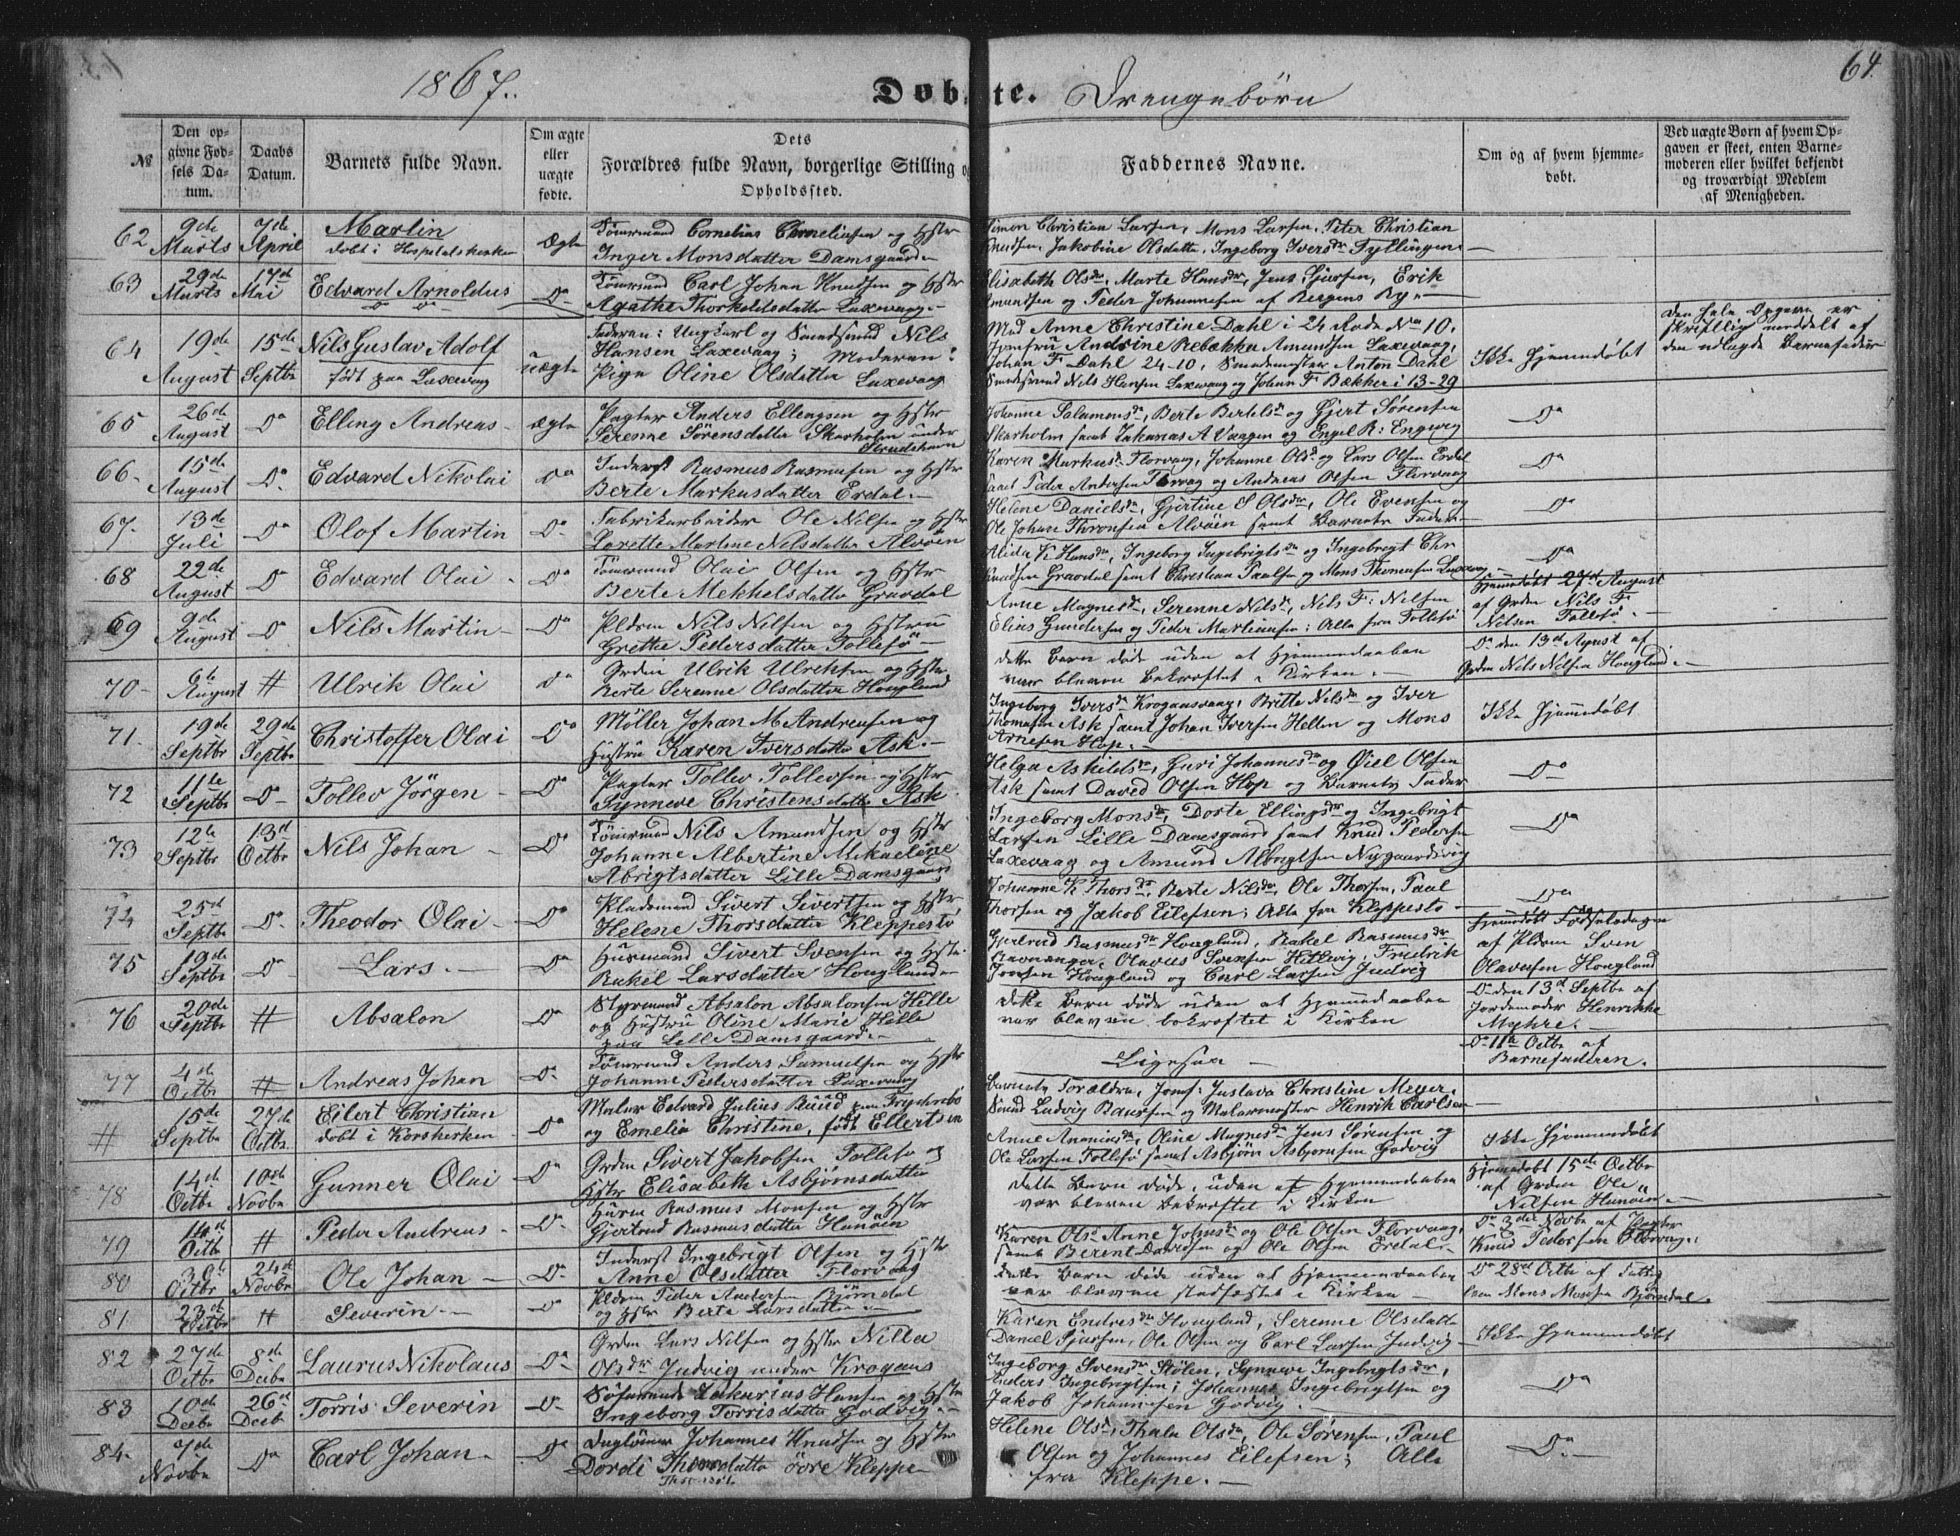 1867.
Døbte. Drengebørn
64.
№
Den opgivne Fødsels Datum.
Daabs Datum.
Barnets fulde Navn.
Om ægte eller uægte fødte.
Dets
Forældres fulde Navn, borgerlige Stilling og
Opholdssted.
Faddernes Navne.
Om og af hvem hjemmedøbt.
Ved uægte Børn af hvem Opgaven er skeet, enten Barnemoderen eller hvilket bekjendt og troværdigt Medlem af Menigheden.
62 9de Marts 7de April Martin
døbt i Hospitalskirken
Ægte
Tömrmand Cornelius Corneliusen og Hstr
Inger Monsdatter Damsgaard
Simon Christian Larsen, Mons Larsen, Peter Christian
Knudsen, Jakobine Olsdatte, Ingeborg Ivers Dr Fyllingen
63 29de Marts 17de Mai Edvard Arnoldus
Do
Tömrmand Carl Johan Knudsen og Hstr
Agathe Thorkeldsdatter Laxevaag
Elisabeth Olsdr, Marte Hansdr, Jens Sjursen, Erik
Amundsen og Peder Johannesen af Bergens By.
64 19de August 15de Septbr Nils Gustav Adolf
født paa Laxevaag
uægte
Faderen: Ungkarl og Smedsvend Nils
Hansen Laxevaag; Moderen:
Pige Oline Olsdatter Laxevaag
Mad Anne Christine Dahl i 24 Rode No 10,
Jomfru Andrine Rebekka Amundsen Laxevaag,
Johan F. Dahl 24-10, Smedemester Anton Dahl
Smedsvend Nils Hansen Laxevaag og Johan F. Bekker i 13-29
Ikke Hjemmedøbt
Den hele Opgave er
skriftlig meddelt af
den udlagte Barnefader
65 26de August Do Elling Andreas
Ægte
Pagter Anders Ellengsen og Hstr
Serenne Sörensdatter Skarholm under
Strudshavn
Johanne Salamonsdr, Berte Bertelsdr og Gjert Sørensen
Skarholm samt Zakarias A Vaagen og Engel R: Engevig
Do
66. 15de August Do Edvard Nikolai
Do
Inderst Rasmus Rasmusen og Hstr
Berte Markusdatter Erdal
Karen Markusdr Florvaag, Johanne Olsdr og Lars Olsen Erdal
samt Peder Andersen Florvaag og Andreas Olsen Florvaag
Do
67. 13de Juli Do Olaf Martin
Do
Fabrikarbeider Ole Nilsen og Hstr
Lorette Martine Nilsdatter Alvöen
Helene Danielsdr, Gjertine S Olsdr, Ole Evensen og
Ole Johan Thronsen Alvöen samt Barnets Fader
Do
68 22de August Do Edvard Olai
Do
Tömrmand Olai Olsen og Hstr
Berte Mekkelsdatter Gravdal
Alida K Hansdr, Ingeborg Ingebrigtsdr og Ingebregt Chr
Knudsen Gravdal samt Christian Paalsen og Mons Thomesen Laxevaag
Do
69 9de August Do Nils Martin
Do
Pldren Nils Nelsen og Hstru
Grethe Pedersdatter Follesö
Anne Magnesdr, Serenne Nilsdr, Nils F: Nelsen
Elias Gundersen og Peder Martiniusen: Alle fra Follesö
Hjemmdøbt 27de August
af Grden Nils F.
Nelsen Follesö
70 6te August # Ulrik Olai
Do
Grden Ulrik Ulriksen og Hstr
Berte Serenne Olsdatter Hougland
dette Barn døde uden at Hjemmedaaben
var bleven bekræftet i Kirken.
Do den 13de August af
Grden Nils Nelsen Hougland.
71. 19de Septbr 29de Septbr Christoffer Olai
Do
Møller Johan M Andreasen og
Hustru Karen Iversdatter Ask
Ingeborg Iversdr Krogaasvaag, Britte Nilsdr og Iver
Thomasen Ask samt Johan Iversen Hellen og Mons
Arnesen Hop.
Ikke Hjemmdøbt
72 11te Septbr Do Tollev Jörgen
Do
Pagter Tollev Tollevsen og Hstr
Synneve Christensdatter Ask
Helga Askildsdr, Guri Johannesdr og Øiel Olsen
Ask samt David Olsen Hop og Barnets Fader
Do
73 12te Septbr 13de Octbr Nils Johan
Do
Tömrmand Nils Amundsen og Hstr
Johanne Albertine Mikaeline
Abrigtsdatter Lille Damsgaard
Ingeborg Monsdr, Dorte Ellingsdr og Ingebrigt
Larsen Lille Damsgaard samt Knud Pedersen
Laxevaag og Amund Albregtsen Nygaardsvig
Do
74 25de Septbr Do Theodor Olai
Do
Pladsmand Sivert Sivertsen og Hstr
Helene Thorsdatter Kleppestö
Johanne K Thorsdr, Berte Nilsdr, Ole Thorsen, Paul
Thorsen og Jakob Eilefsen; Alle fra Kleppestö
Do
75 19de Septbr Do Lars
Do
Husmand Sivert Svensen og Hstr
Rakel Larsdatter Hougland
Gjertrud Rasmusdr Hougland, Rakel Rasmusdr
Ravnanger, Olavus Svensen Hillevig, Fredrik
Iversen Hougland og Carl Larsen Judvig
Hjemmdøbt Fødselsdagen
af Pldren Sven
Olavesen Hougland
76 20de Septbr # Absalon
Do
Styrmand Absalon Absalonsen Hille
og Hustru Oline Marie Hille
paa Lille Damsgaard
dette Barn døde uden at Hjemmedaaben
var bleven bekræftet i Kirken
Do den 13de Septbr af
Jordemoder Henrikke
Myhre.
77 4de Octbr # Andreas Johan
Do
Tömrmand Anders Samuelsen og Hstr
Johanne Pedersdatter Laxevaag
Ligesaa
Do 11te Octbr af
Barnefaderen.
# 15de Septbr 27de Octbr Eilert Christian
døbt i Korskerken
Do
Maler Edvard Julius Ruud paa Frydenbø
og Emelia Christine, født Ellertsen
Barnets Forældre, Jomf: Gustava Christine Meyer,
Svend Ludvig Baussen og Malermester Henrik Carlsen
78 14de Octbr 10de Novbr Gunner Olai
Do
Grden Sivert Jakobsen Follesö og
Hstr Elisabeth Asbjörnsdatter
Anne Ananiasdr, Oline Magnesdr, Jens Sørensen og
Ole Larsen Follesö samt Asbjørn Asbjørnsen Godvig
Ikke Hjemmendøbt
79 14de Octbr # Peder Andreas
Do
Husm Rasmus Monsen og Hstr
Gjertrud Rasmusdatter Hanöen
Dette Barn døde, uden at Hjemmendaaben
var bleven bekræftet i Kirken
Hjemmdøbt 15de Octbr
af Grden Ole
Nilsen Hanöen.
80 30te Octbr 24de Novbr Ole Johan
Do
Inderst Ingebrigt Olsen og Hstr
Anne Olsdatter Florvaag
Karen Olsdr Anne Johnsdr og Ole Olsen Florvaag,
samt Berent Davidsen og Ole Olsen Erdal
Do 3die Novbr af Pagter
Knud Pedersen Florvaag.
81 23de Octbr # Severin
Do
Pldren Peder Andersen Björndal
og Hstr Berte Larsdatter
Dette Barn døde uden at Hjemmendaaben
var bleven stadfæstet i Kirken
Do 28de Octbr af Fattig
lem Mons Monsen Bjørndal.
82 27de Octbr 8de Decbr Laurus Nikolaus
Do
Grden Lars Nilsen og Hstr Nilla
Olsdr Judvig under Krogaas
Karen Endresdr Hougland, Serenne Olsdatte
Daniel Sjursen, Ole Olsen og Carl Larsen Judvig
Ikke Hjemmendøbt
83 10de Decbr 26de Decbr Torris Severin
Do
Husmand Zakarias Hansen og Hstr
Ingeborg Torrisdatter Godvig
Ingeborg Svensdr Stölen, Synneve Ingebrigtsdr,
Anders Ingebregtsen; Johannes Ingebrigtsen og
Jakob Johannesen Godvig.
Do
84. 7de Novbr Do Carl Johan
Do
Daglönner Johannes Knudsen og Hstr
Dordi Thorsdatter övre Kleppe
Helene Olsdr, Thala Olsdr, Ole Sørensen, Paul
Olsen og Johannes Eilefsen; Alle
fra Kleppe.
Do